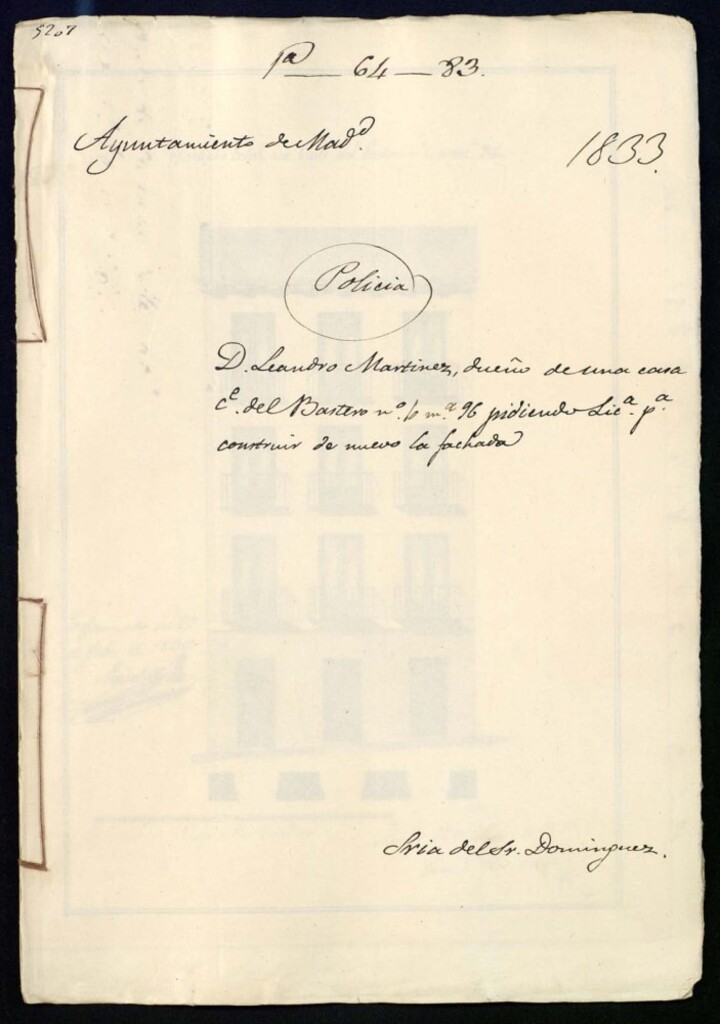 5207
Pª — 64 — 83.
Ayuntamiento de Madᵈ.
1833.
Policia
D. Leandro Martinez, dueño de una casa
cᵉ. del Bastero nº. 6 mª. 96 pidiendo Licª. pª.
construir de nuevo la fachada
Sria del Sr. Dominguez.